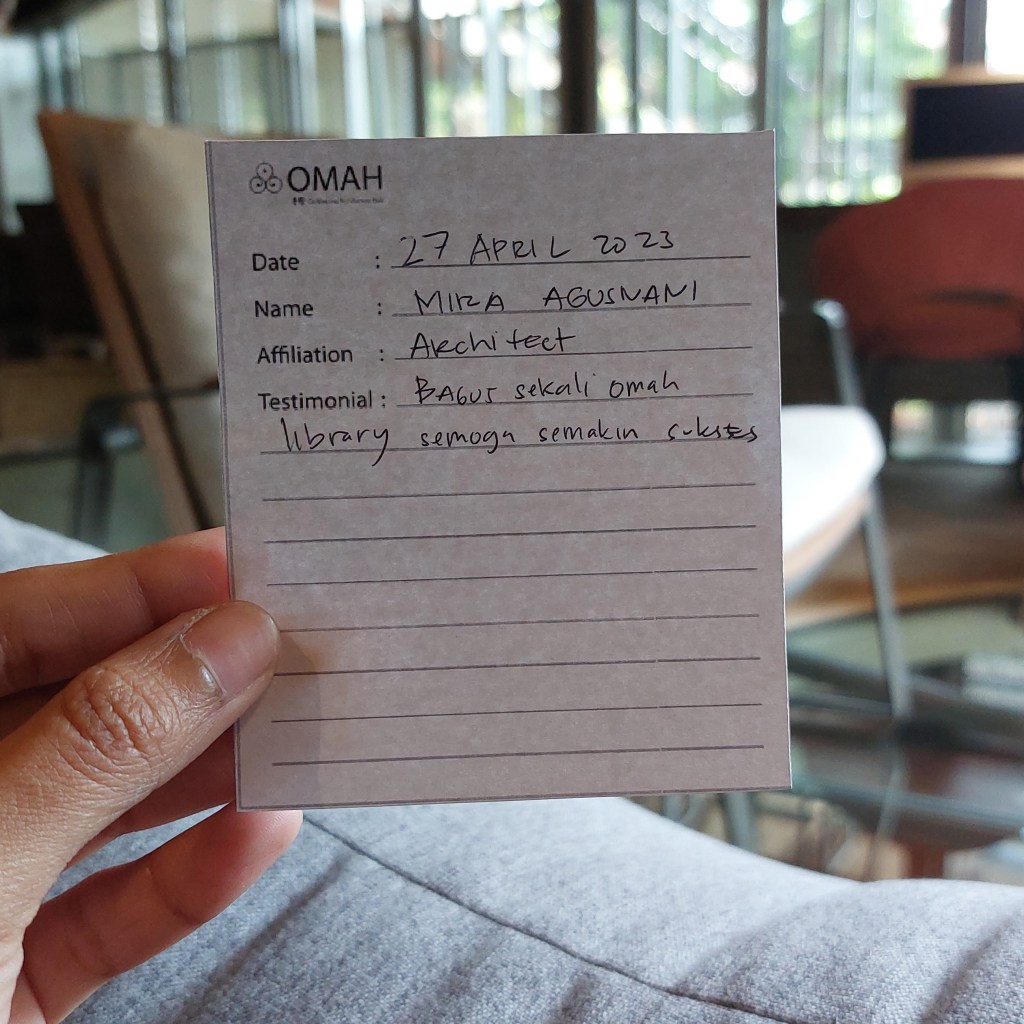 OMAH
Date : 27 APRIL 2023
Name : MIRA AGUSNANI
Affiliation : Architect
Testimonial : BAGUS sekali omah
library semoga semakin sukses